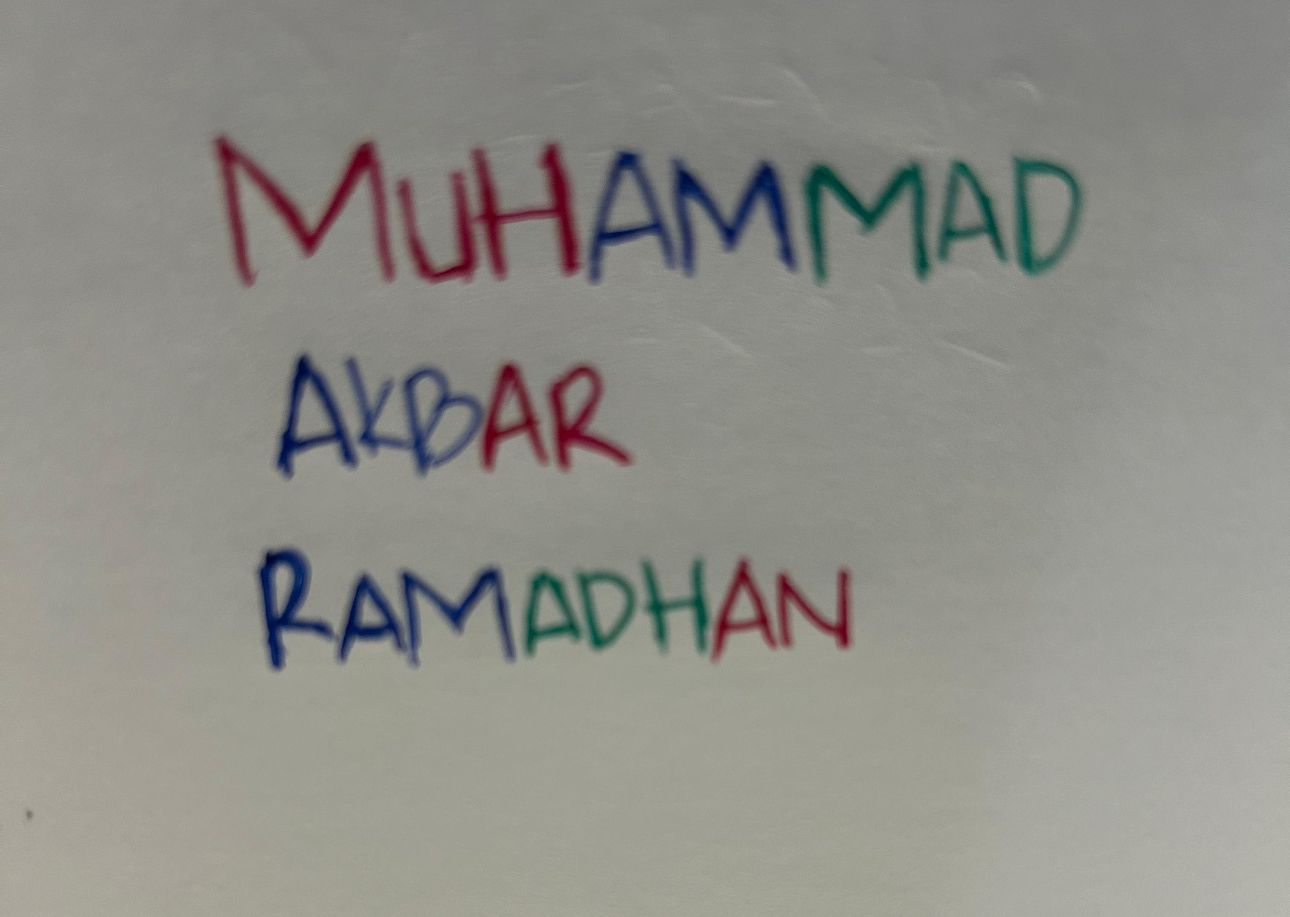 MUHAMMAD
AKBAR
RAMADHAN